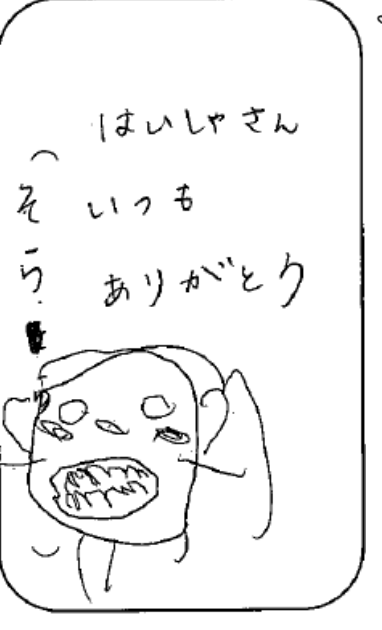 はいしゃさん
いつも
ありがとう
(そら